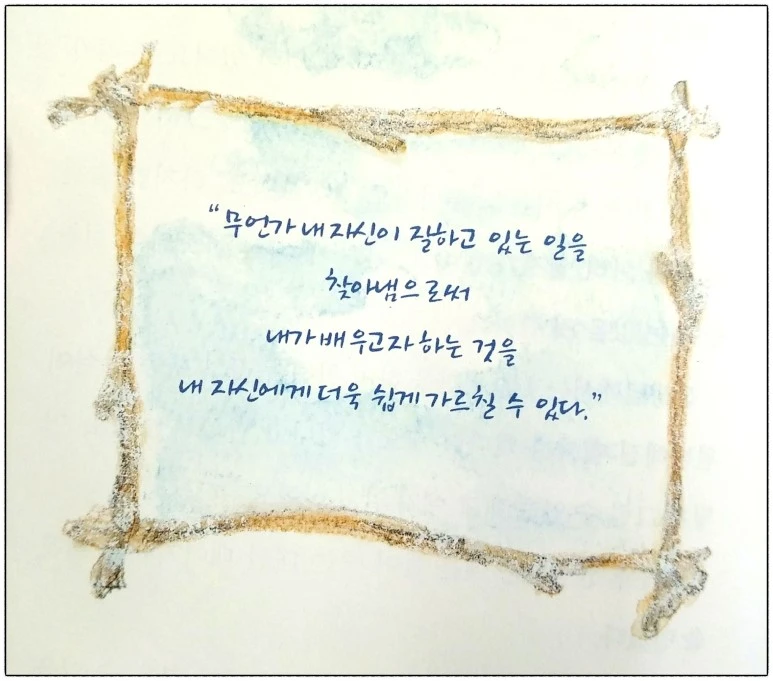 “무언가 내 자신이 잘하고 있는 일을
찾아냄으로써
내가 배우고자 하는 것을
내 자신에게 더욱 쉽게 가르칠 수 있다.”